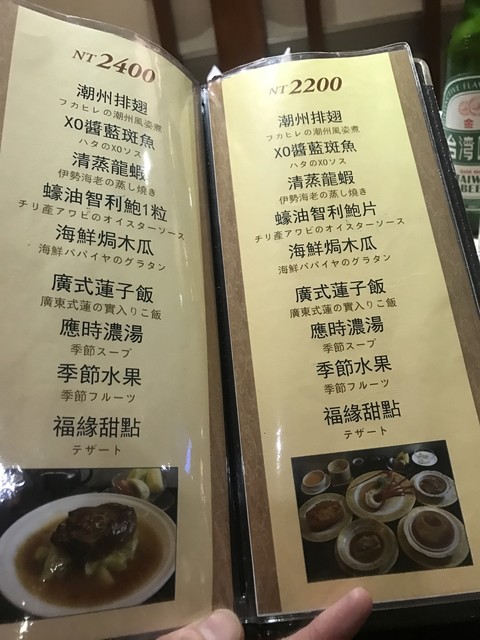 NT 2400
潮州排翅
フカヒレの潮州風姿煮
XO醬藍斑魚
ハタのXOソース
清蒸龍蝦
伊勢海老の蒸し焼き
蠔油智利鮑1粒
チリ産アワビのオイスターソース
海鮮焗木瓜
海鮮パパイヤのグラタン
廣式蓮子飯
廣東式蓮の實入りご飯
應時濃湯
季節スープ
季節水果
季節フルーツ
福緣甜點
デザート
NT 2200
潮州排翅
フカヒレの潮州風姿煮
XO醬藍斑魚
ハタのXOソス
清蒸龍蝦
伊勢海老の蒸し焼き
蠔油智利鮑片
チリ産アワビのオイスターソース
海鮮焗木瓜
海鮮パパイヤのグラタン
廣式蓮子飯
廣東式蓮の實入りご飯
應時濃湯
季節スープ
季節水果
季節フルーツ
福緣甜點
デザート
金
台灣
TAIWAN
BEER